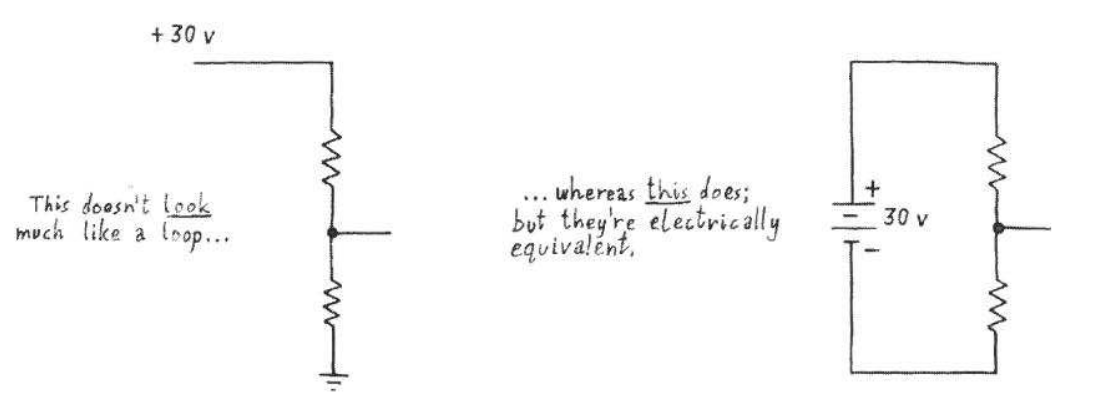 + 30 v
This doesn't look
much like a loop...
... whereas this does;
but they're electrically
equivalent.
+
30 v
-